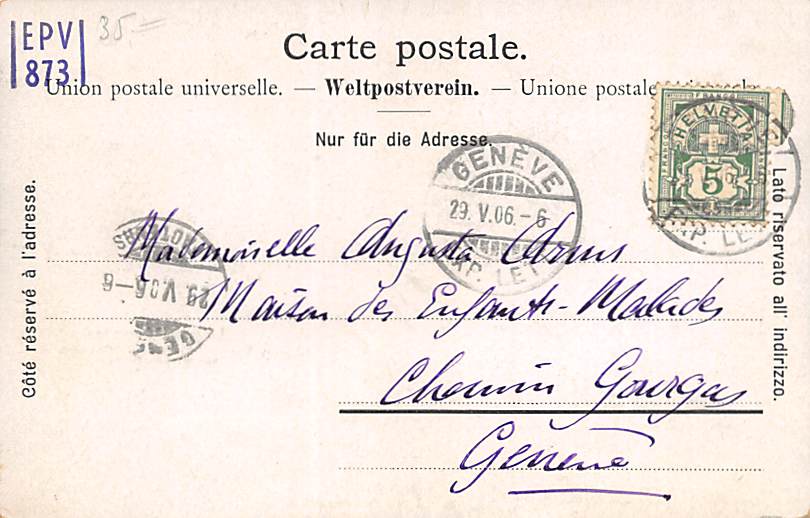 EPV
873
35.—
Carte postale.
Union postale universelle. — Weltpostverein. — Unione postale
Nur für die Adresse.
Côté réservé à l'adresse.
Lato riservato all' indirizzo.
HELVETIA
FRANCO
5
GENÈVE
29. V. 06. - 6
EXP. LET
EXP. LE
29. V 06 - 6
GENÈ
Mademoiselle Augusta
Maison des Enfants-Malades
Chemin Gourgas
Genève